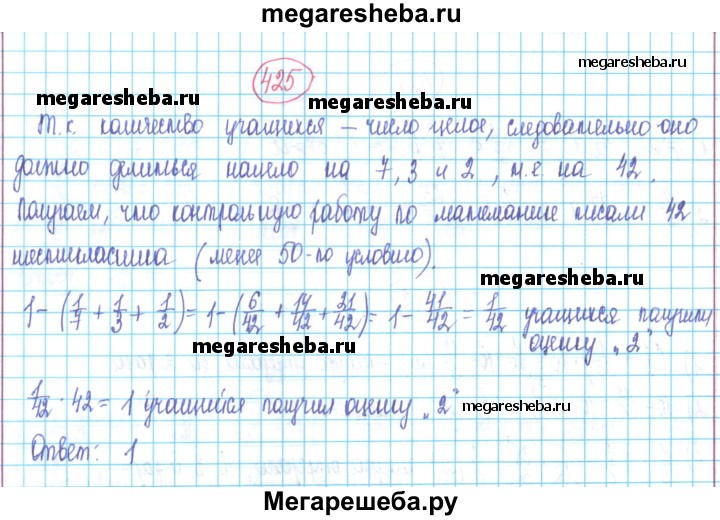 megaresheba.ru
megaresheba.ru
425
megaresheba.ru
megaresheba.ru
Т.к. количество учащихся – число целое, следовательно оно
должно делиться нацело на 7, 3 и 2, т.е на 42.
Получаем, что контрольную работу по математике писали 42
шестиклассника (менее 50-по условию).
megaresheba.ru
1-(1/7+1/3+1/2)=1-(6/42+14/42+21/42)=1-41/42=1/42 учащихся получили
оценку „2"
megaresheba.ru
1/42·42=1 (учащийся получил оценку „2"
megaresheba.ru
Ответ: 1
Мегарешеба.ру